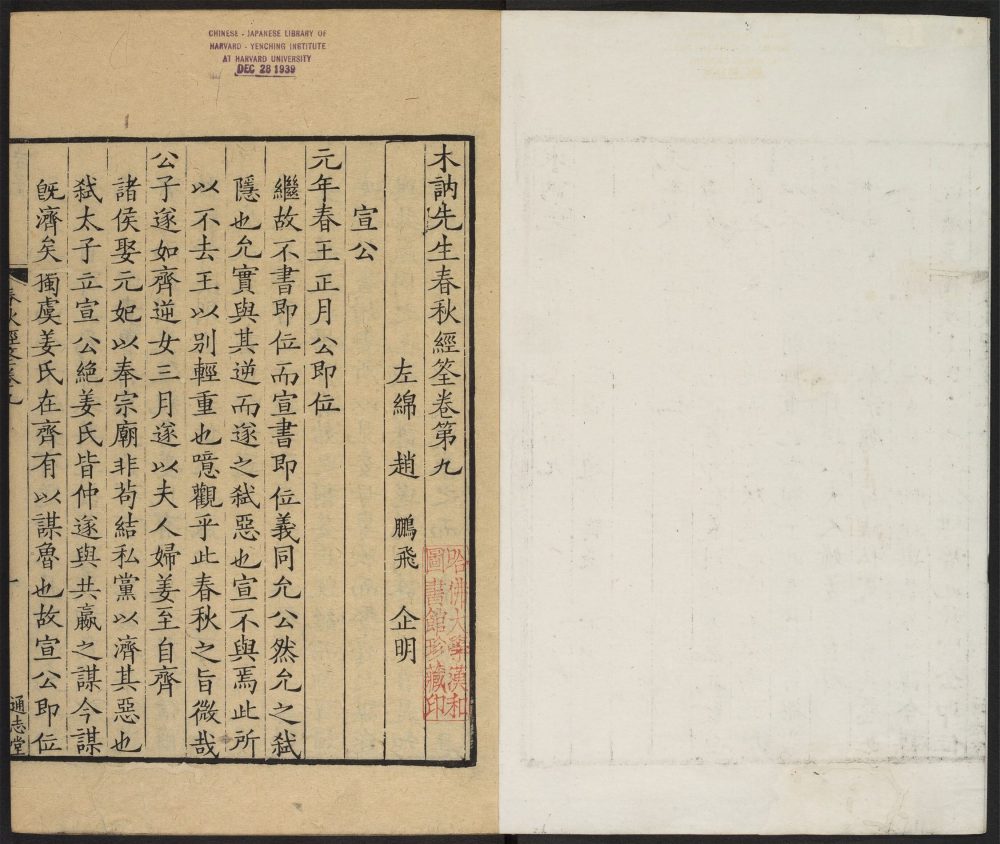 CHINESE - JAPANESE LIBRARY OF
HARVARD - YENCHING INSTITUTE
AT HARVARD UNIVERSITY
DEC 28 1939
木訥先生春秋經筌卷第九
左綿 趙 鵬飛 企明
宣公
元年春王正月公即位
繼故不書即位而宣書即位義同允公然允之弑
隱也允實與其逆而遂之弑惡也宣不與焉此所
以不去王以別輕重也噫觀乎此春秋之旨微哉
公子遂如齊逆女三月遂以夫人婦姜至自齊
諸侯娶元妃以奉宗廟非苟結私黨以濟其惡也
弑太子立宣公絶姜氏皆仲遂與共嬴之謀今謀
旣濟矣獨虞姜氏在齊有以謀魯也故宣公即位
春秋經筌卷九
一
通志堂
哈佛大學漢和
圖書館珍藏印